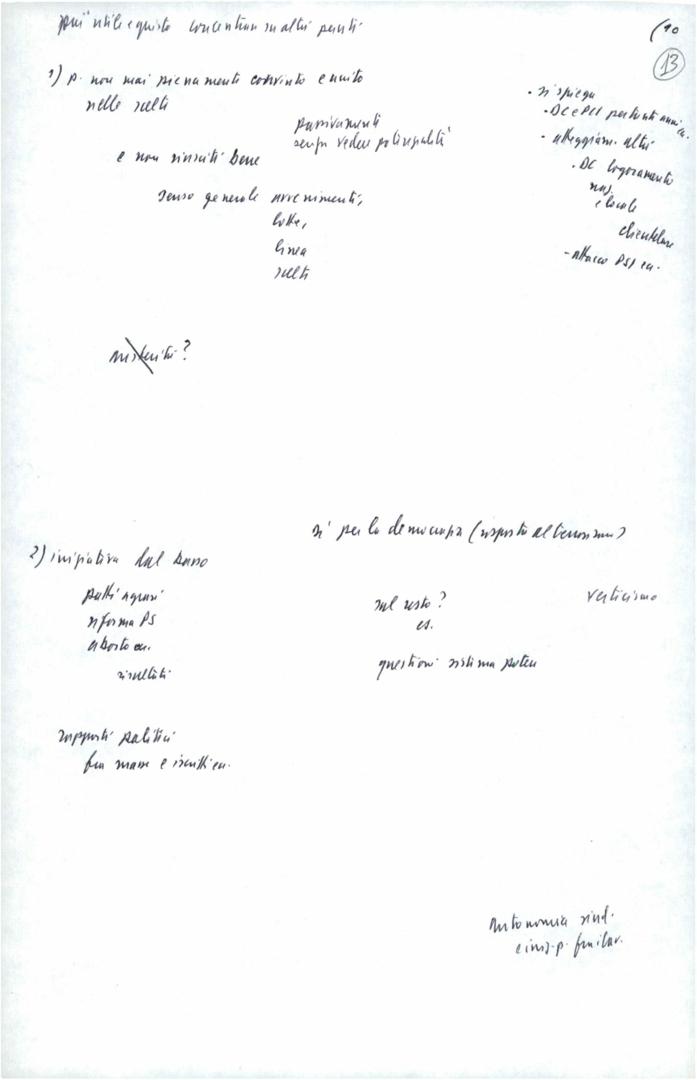 più utile e giusto concentrarsi altri punti
(10
13
1) p. non mai pienamente convinto e unito
nelle scelte
passivamente
senza vedere potenzialità
e non riusciti bene
senso generale avvenimenti,
lotte,
linea
scelte
• si spiega
• DC e PCI per tanti anni
• atteggiam. altri
• DC logoramento
naz.
e locale
clientelare
- attacco PSI ecc.
?
sì per la democrazia (risposta al terrorismo)
2) iniziativa dal basso
patti agrari
riforma PS
aborto ecc.
risultati
sul resto?
es.
verticismo
questioni sistema potere
rapporti politici
fra masse e iscritti ecc.
Autonomia sind.
e ins. p. fra i lav.